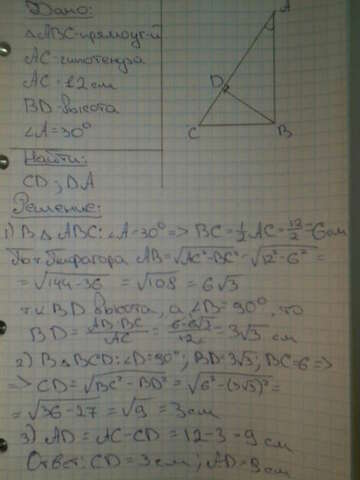 Дано:
△ABC-прямоуг-й
AC-гипотенуза
AC = 12 см
BD-высота
∠A=30°
Найти:
CD; DA
A
D
C
B
Решение:
1) В △ ABC: ∠A=30° => BC = 1/2 AC = 12/2 = 6 см
По т. Пифагора AB = √AC²-BC² = √12²-6² =
= √144-36 = √108 = 6√3
т.к BD высота, а ∠B=90°, то
BD = AB·BC/AC = 6·6√3/12 = 3√3 см
2) В △ BCD: ∠D=90°; BD=3√3; BC=6 =>
=> CD = √BC²-BD² = √6²-(3√3)² =
= √36-27 = √9 = 3 см
3) AD = AC-CD = 12-3 = 9 см
Ответ: CD = 3 см; AD=9 см